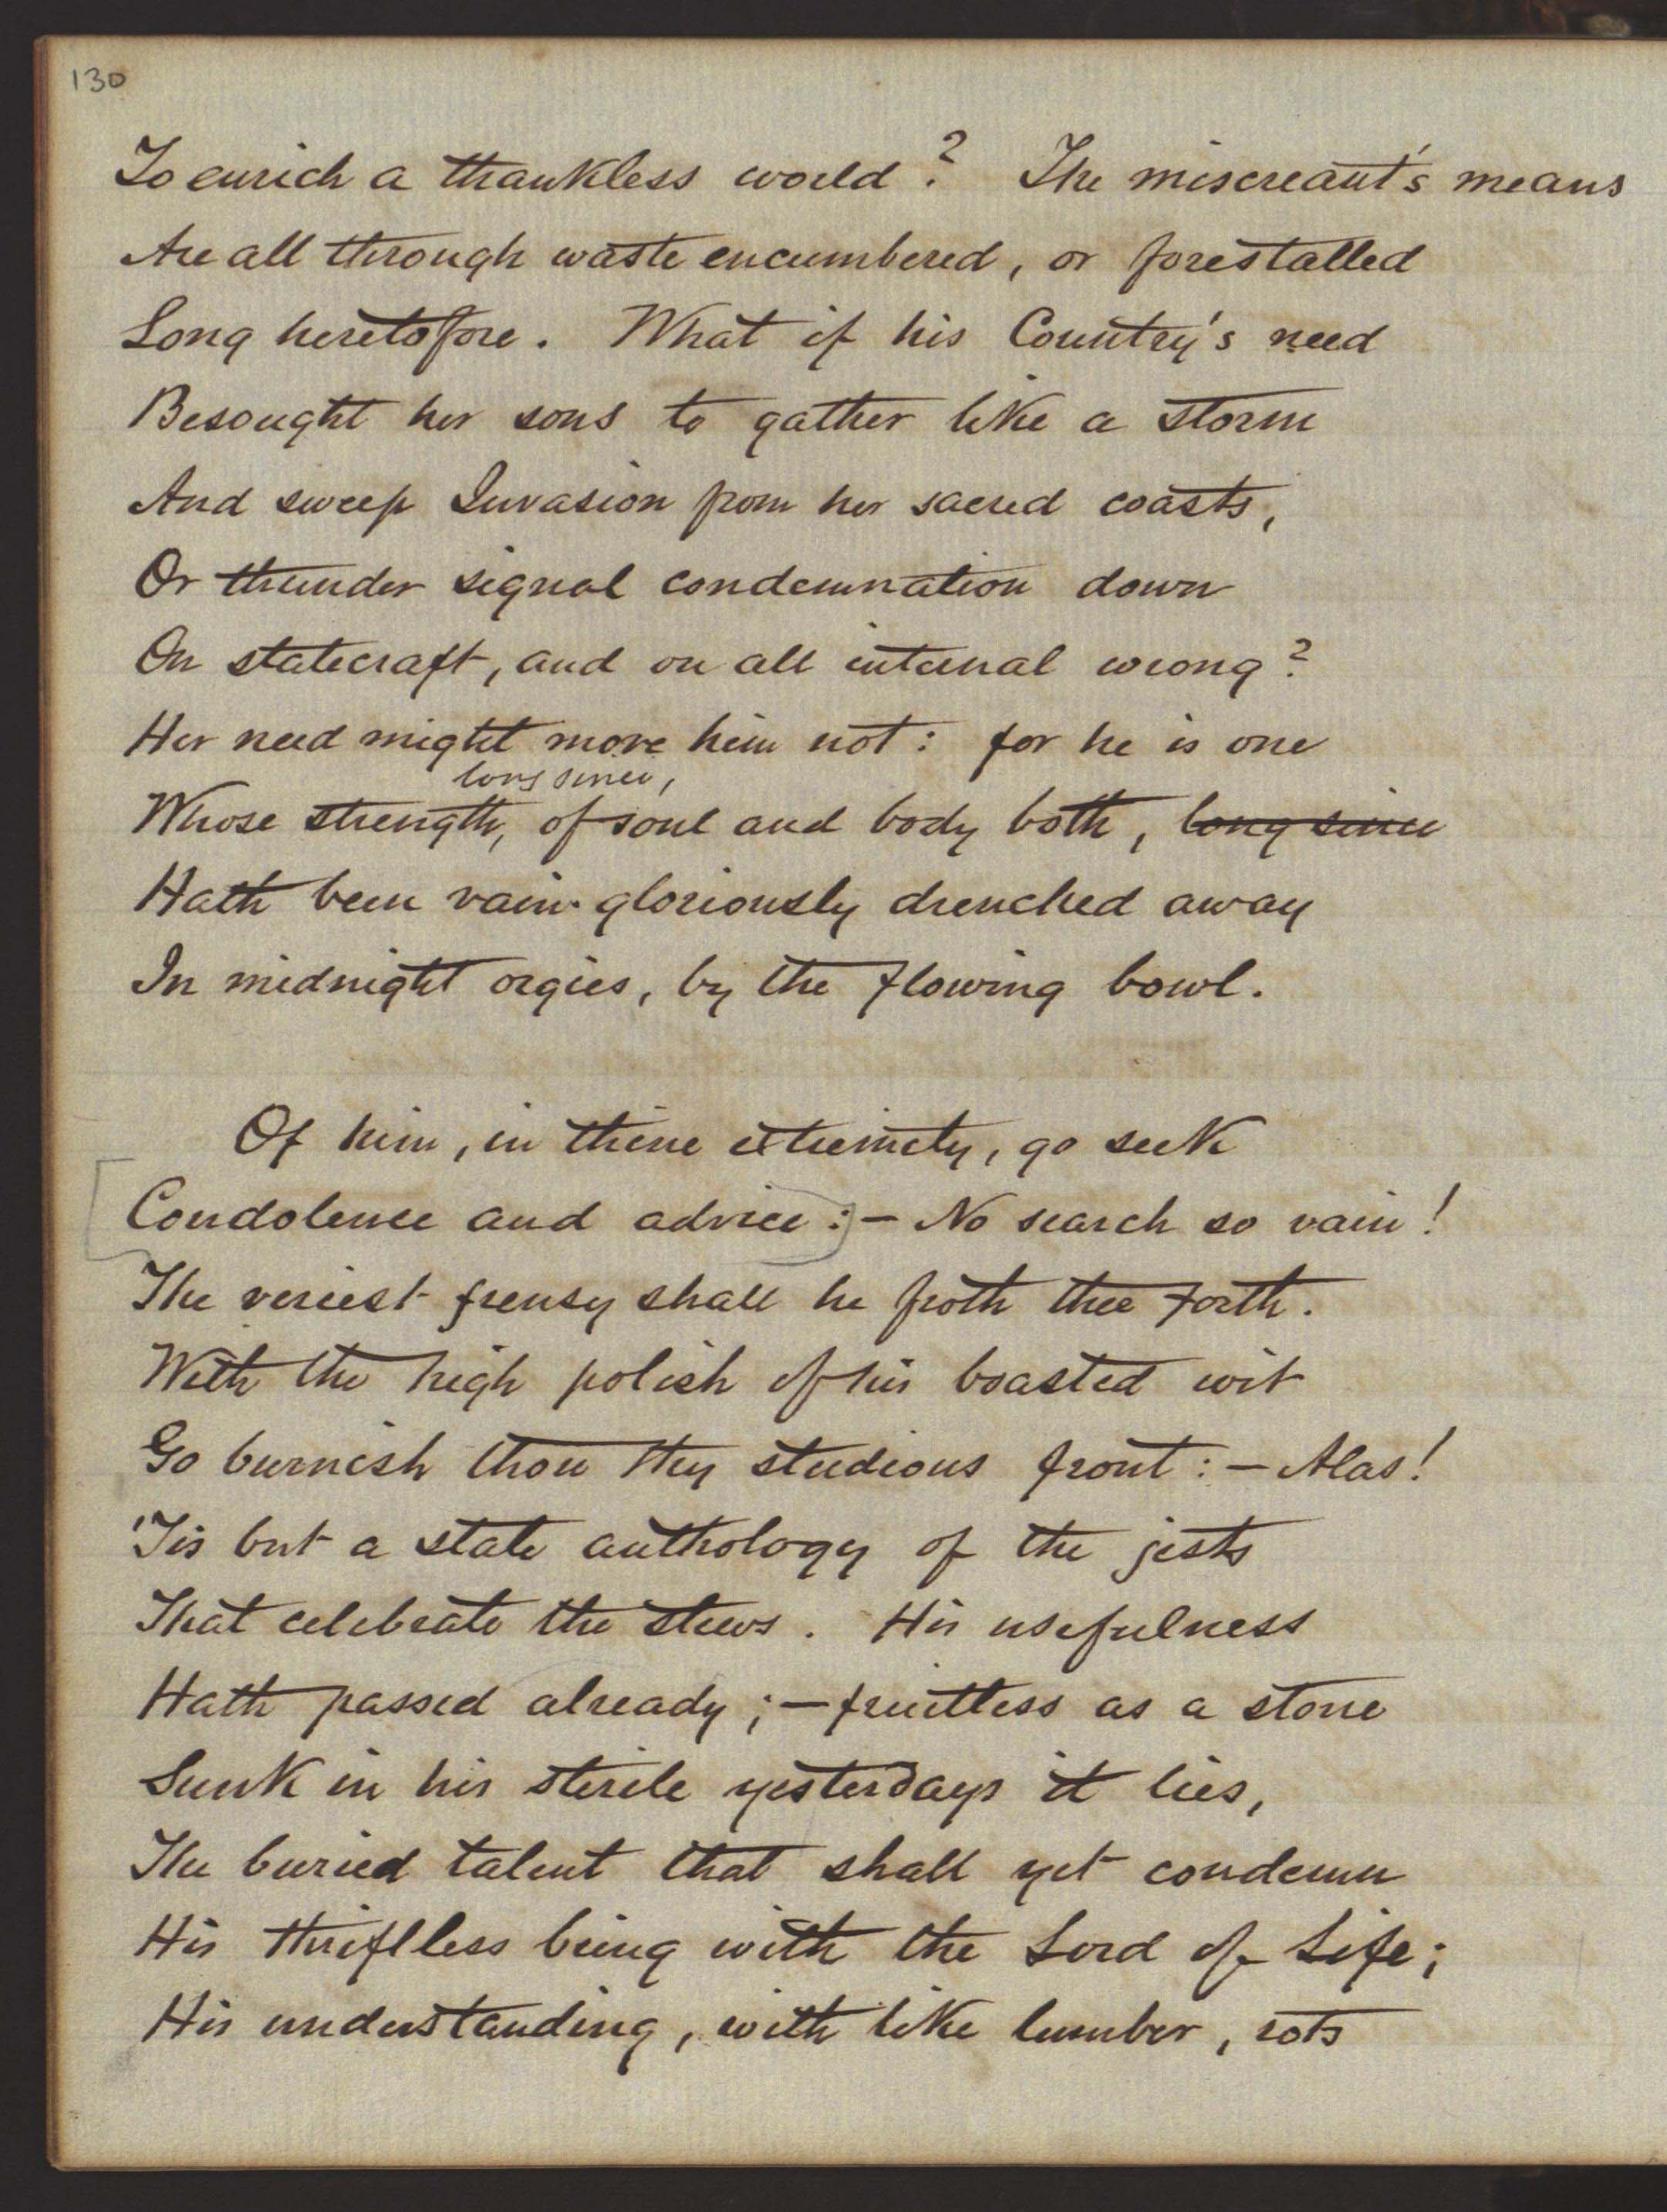 130
To enrich a thankless world? The miscreant's means
Are all through waste encumbered, or forestalled
Long heretofore. What if his Country's need
Besought her sons to gather like a storm
And sweep Invasion from her sacred coasts,
Or thunder signal condemnation down
On statecraft, and on all internal wrong?
Her need might move him not: for he is one
long since,
Whose strength, of soul and body both, long since
Hath been vain-gloriously drenched away
In midnight orgies, by the flowing bowl.
Of him, in thine extremity, go seek
[Condolence and advice:]— No search so vain!
The veriest frensy shall he froth thee forth.
With the high polish of his boasted wit
Go burnish thou thy studious front:— Alas!
'Tis but a stale anthology of the jests
That celebrate the stews. His usefulness
Hath passed already;— fruitless as a stone
Sunk in his sterile yesterdays it lies,
The buried talent that shall yet condemn
His thriftless being with the Lord of Life;
His understanding, with like lumber, rots